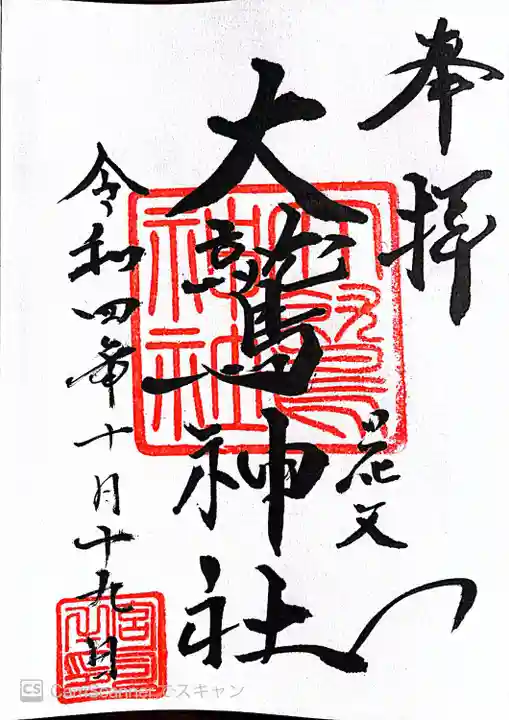 奉拝
大鷲神社
令和四年十月十九日
CS CamScanner でスキャン